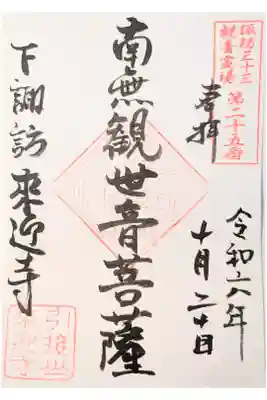 諏訪三十三
観音霊場
第二十五番
奉拝
令和六年
十月二十日
南無観世音菩薩
下諏訪来迎寺